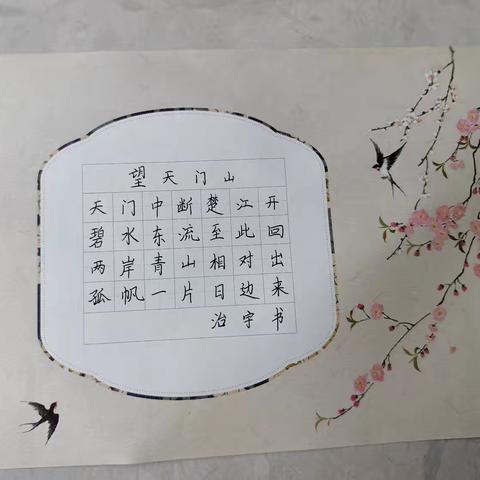 望天门山
天门中断楚江开
碧水东流至此回
两岸青山相对出
孤帆一片日边来
治宇书